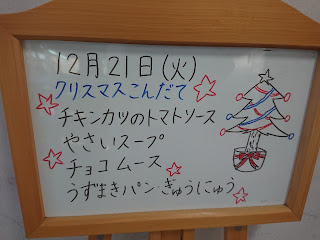 12月21日(火)
クリスマスこんだて
チキンカツのトマトソース
やさいスープ
チョコムース
うずまきパン ぎゅうにゅう